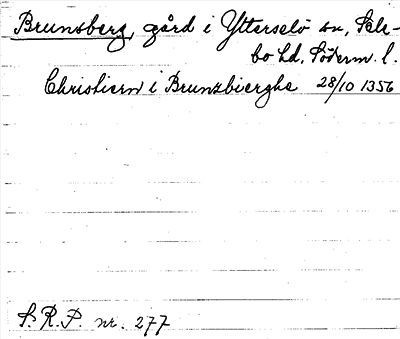 Brunsberg, gård i Ytterselö sn, Sele-
bo hd, Söderm. l.
Christiern i Brunzbierghe 28/10 1356
S. R. P. nr. 277